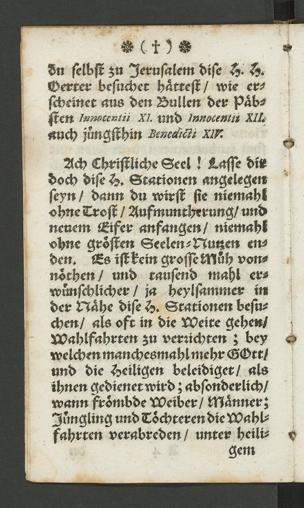 ❋ ( † ) ❋
du selbst zu Jerusalem dise H. H.
Oerter besuchet hättest / wie er-
scheinet aus den Bullen der Päb-
sten Innocentii XI. und Innocentii XII.
auch jüngsthin Benedicti XIV.
Ach Christliche Seel ! Lasse dir
doch dise H. Stationen angelegen
seyn / dann du wirst sie niemahl
ohne Trost / Aufmuntherung / und
neuem Eifer anfangen / niemahl
ohne grösten Seelen-Nutzen en-
den. Es ist kein grosse Müh von-
nöthen / und tausend mahl er-
wünschlicher / ja heylsammer in
der Nähe dise H. Stationen besu-
chen / als oft in die Weite gehen /
Wahlfahrten zu verzichten ; bey
welchen manchesmahl mehr GOtt /
und die Heiligen beleidiget / als
ihnen gedienet wird ; absonderlich /
wann frömbde Weiber / Männer ;
Jüngling und Töchteren die Wahl-
fahrten verabreden / unter heili-
gem